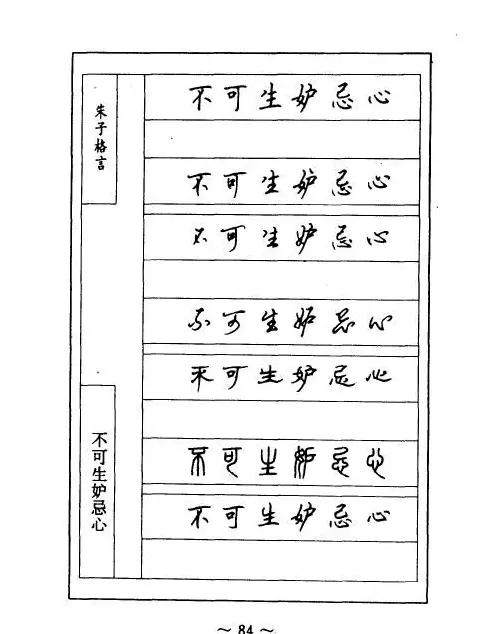 朱子格言
不可生妒忌心
不可生妒忌心
不可生妒忌心
不可生妒忌心
不可生妒忌心
不可生妒忌心
不可生妒忌心
不可生妒忌心
～ 84 ～